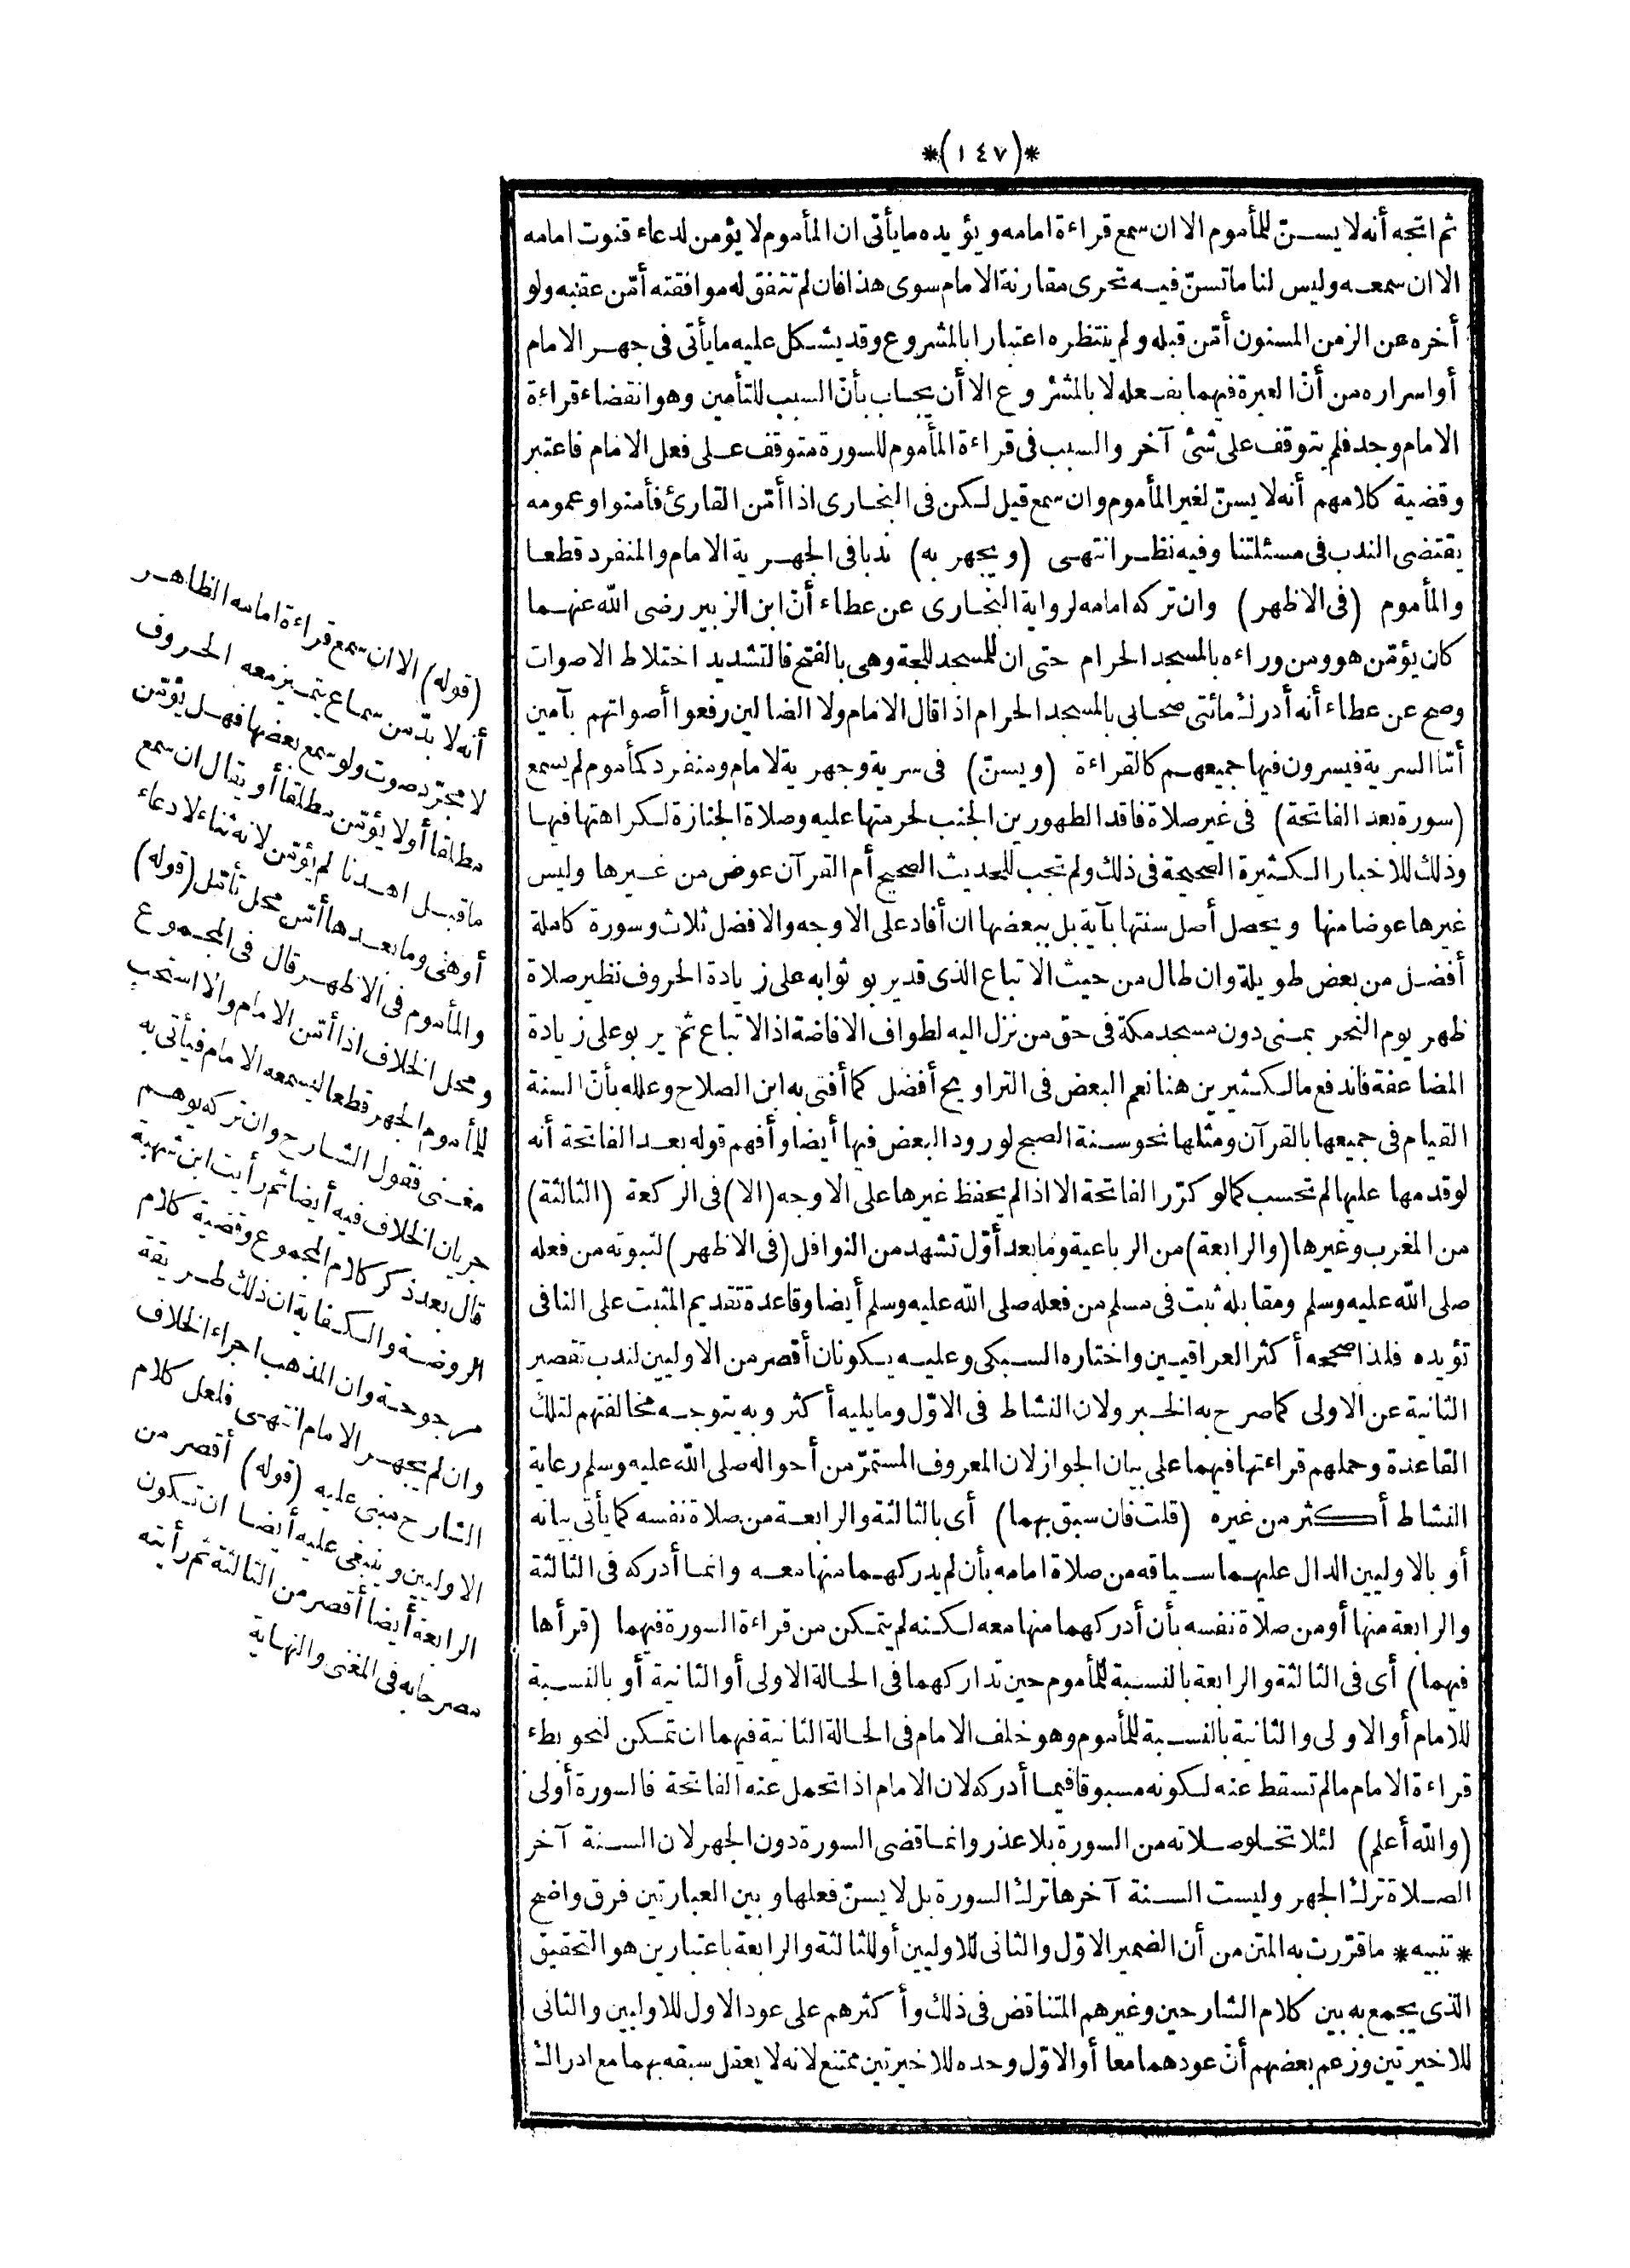 *(١٤٧)*
ثم اتجه أنه لا يسنّ للمأموم الا ان سمع قراءة امامه ويؤيده ما يأتى ان المأموم لا يؤمن لدعاء قنوت امامه
الا ان سمعه وليس لنا ما تسنّ فيه تحرى مقارنة الامام سوى هذا فان لم تتفق له موافقته أمّن عقبه ولو
أخره عن الزمن المسنون أمّن قبله ولم ينتظره اعتبارا بالمشروع وقد يشكل عليه ما يأتى فى جهر الامام
أو اسراره من أنّ العبرة فيهما بفعله لا بالمشروع الا أن يجاب بأنّ السبب للتأمين وهو انقضاء قراءة
الامام وجد فلم يتوقف على شئ آخر والسبب فى قراءة المأموم للسورة متوقف على فعل الامام فاعتبر
وقضية كلامهم أنه لا يسنّ لغير المأموم وان سمع قيل لكن فى البخارى اذا أمّن القارئ فأمنوا وعمومه
يقتضى الندب فى مسئلتنا وفيه نظر انتهى (ويجهر به) ندبا فى الجهرية الامام والمنفرد قطعا
والمأموم (فى الاظهر) وان تركه امامه لرواية البخارى عن عطاء أنّ ابن الزبير رضى الله عنهما
كان يؤمّن هو ومن وراءه بالمسجد الحرام حتى ان للمسجد للجة وهى بالفتح فالتشديد اختلاط الاصوات
وصح عن عطاء أنه أدرك مائتى صحابى بالمسجد الحرام اذا قال الامام ولا الضالين رفعوا أصواتهم بآمين
أمّا السرية فيسرون فيها جميعهم كالقراءة (ويسنّ) فى سرية وجهرية لامام ومنفرد كمأموم لم يسمع
(سورة بعد الفاتحة) فى غير صلاة فاقد الطهورين الجنب لحرمتها عليه وصلاة الجنازة لكراهتها فيها
وذلك للاخبار الكثيرة الصحيحة فى ذلك ولم تجب للحديث الصحيح أم القرآن عوض من غيرها وليس
غيرها عوضا منها ويحصل أصل سنتها بآية بل ببعضها ان أفاد على الاوجه والافضل ثلاث وسورة كاملة
أفضل من بعض طويلة وان طال من حيث الاتباع الذى قد يربو ثوابه على زيادة الحروف نظير صلاة
ظهر يوم النحر بمنى دون مسجد مكة فى حق من نزل اليه لطواف الافاضة اذ الاتباع ثم يربو على زيادة
المضاعفة فاندفع ما لكثيرين هنا نعم البعض فى التراويح أفضل كما أفتى به ابن الصلاح وعلله بأنّ السنة
القيام فى جميعها بالقرآن ومثلها نحو سنة الصبح لورود البعض فيها أيضا وأفهم قوله بعد الفاتحة أنه
لو قدمها عليها لم تحسب كما لو كرّر الفاتحة الا اذا لم يحفظ غيرها على الاوجه (الا) فى الركعة (الثالثة)
من المغرب وغيرها (والرابعة) من الرباعية وما بعد أوّل تشهد من النوافل (فى الاظهر) لثبوته من فعله
صلى الله عليه وسلم ومقابله ثبت فى مسلم من فعله صلى الله عليه وسلم أيضا وقاعدة تقديم المثبت على النافى
تؤيده فلذا صححه أكثر العراقيين واختاره السبكى وعليه يكونان أقصر من الاوليين لندب تقصير
الثانية عن الاولى كما صرح به الخبر ولان النشاط فى الاوّل وما يليه أكثر وبه يتوجه مخالفتهم لتلك
القاعدة وحملهم قراءتها فيهما على بيان الجواز لان المعروف المستمرّ من أحواله صلى الله عليه وسلم رعاية
النشاط أكثر من غيره (قلت فان سبق بهما) أى بالثالثة والرابعة من صلاة نفسه كما يأتى بيانه
أو بالاوليين الدال عليهما سياقه من صلاة امامه بأن لم يدركهما منها معه وانما أدركه فى الثالثة
والرابعة منها أو من صلاة نفسه بأن أدركهما منها معه لكنه لم يتمكن من قراءة السورة فيهما (قرأها
فيهما) أى فى الثالثة والرابعة بالنسبة للمأموم حين تداركهما فى الحالة الاولى أو الثانية أو بالنسبة
للامام أو الاولى والثانية بالنسبة للمأموم وهو خلف الامام فى الحالة الثانية فيهما ان تمكن لنحو بطء
قراءة الامام ما لم تسقط عنه لكونه مسبوقا فيما أدركه لان الامام اذا تحمل عنه الفاتحة فالسورة أولى
(والله أعلم) لئلا تخلو صلاته من السورة بلا عذر وانما قضى السورة دون الجهر لان السنة آخر
الصلاة ترك الجهر وليست السنة آخرها ترك السورة بل لا يسنّ فعلها وبين العبارتين فرق واضح
*تنبيه* ما قرّرت به المتن من أن الضمير الاوّل والثانى للاوليين أو للثالثة والرابعة باعتبارين هو التحقيق
الذى يجمع به بين كلام الشارحين وغيرهم المتناقض فى ذلك وأكثرهم على عود الاول للاوليين والثانى
للاخيرتين وزعم بعضهم أنّ عودهما معا أو الاوّل وحده للاخيرتين ممتنع لانه لا يعقل سبقه بهما مع ادراك
(قوله) الا ان سمع قراءة امامه الظاهر
أنه لا بدّ من سماع يتميز معه الحروف
لا مجرّد صوت ولو سمع بعضها فهل يؤمّن
مطلقا أو لا يؤمّن مطلقا أو يقال ان سمع
ما قبل اهدنا لم يؤمّن لانه ثناء لا دعاء
أو هى وما بعدها أمّن محل تأمّل (قوله)
والمأموم فى الاظهر قال فى المجموع
ومحل الخلاف اذا أمّن الامام والا استحب
للمأموم الجهر قطعا ليسمعه الامام فيأتى به
مغنى فقول الشارح وان تركه يوهم
جريان الخلاف فيه أيضا ثم رأيت ابن شهبة
قال بعد ذكر كلام المجموع وقضية كلام
الروضة والكفاية ان ذلك طريقة
مرجوحة وان المذهب اجراء الخلاف
وان لم يجهر الامام انتهى فلعل كلام
الشارح مبنى عليه (قوله) أقصر من
الاوليين وينبغى عليه أيضا ان تكون
الرابعة أيضا أقصر من الثالثة ثم رأيته
مصرحا به فى المغنى والنهاية